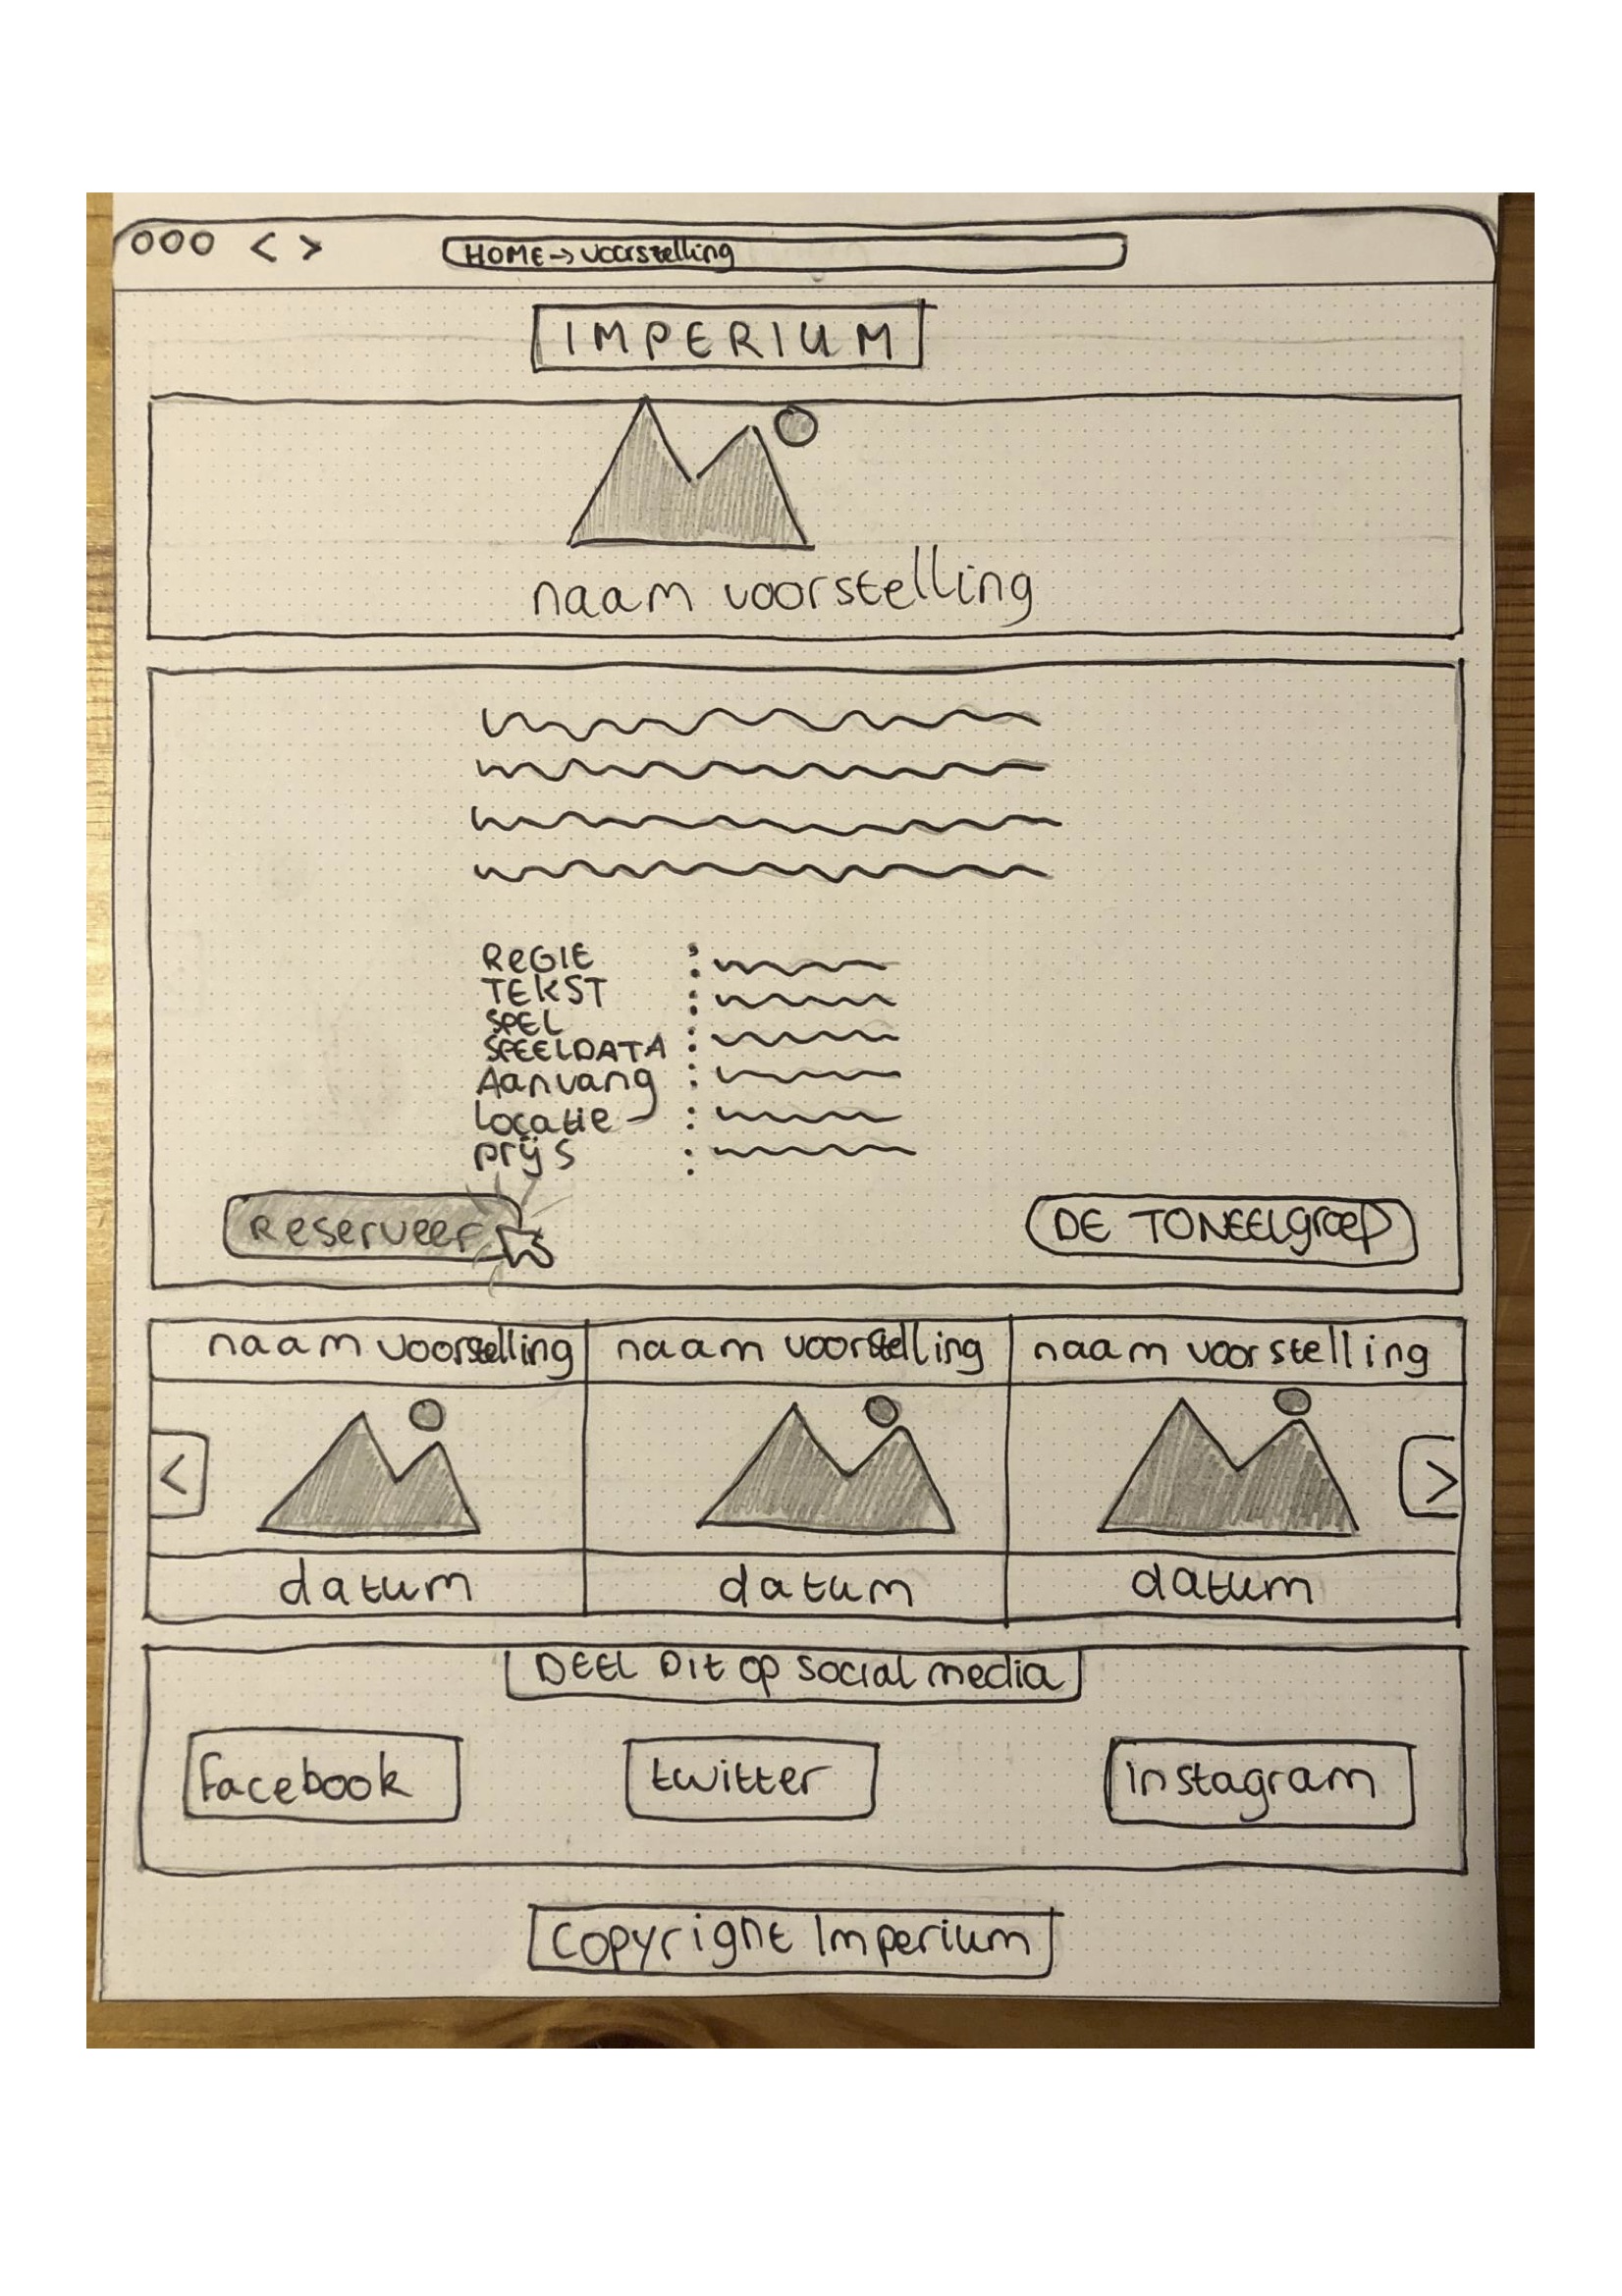 HOME → voorstelling
IMPERIUM
naam voorstelling
REGIE :
TEKST :
SPEL :
SPEELDATA :
Aanvang :
Locatie :
prijs :
Reserveer
DE TONEELgroep
naam voorstelling naam voorstelling naam voorstelling
< >
datum datum datum
DEEL Dit op social media
facebook twitter instagram
Copyright Imperium